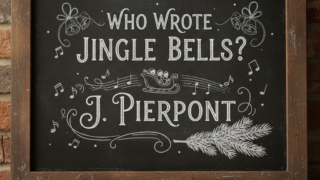 WHO WROTE
JINGLE BELLS?
J. PIERPONT